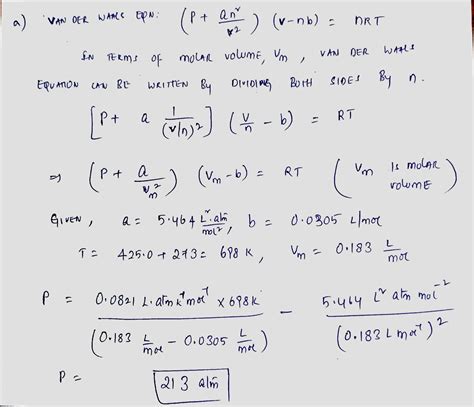 a) VAN DER WAALS EQN: (P + an²/V²) (V-nb) = nRT
IN TERMS OF MOLAR VOLUME, Vm, VAN DER WAALS
EQUATION CAN BE WRITTEN BY DIVIDING BOTH SIDES By n.
[P + a 1/(V/n)²] (V/n - b) = RT
⇒ (P + a/Vm²) (Vm - b) = RT (Vm IS MOLAR VOLUME)
GIVEN, a = 5.464 L².atm/mol², b = 0.0305 L/mol
T = 425.0 + 273 = 698 K, Vm = 0.183 L/mol
P = 0.0821 L.atm K⁻¹ mol⁻¹ × 698K / (0.183 L/mol - 0.0305 L/mol) - 5.464 L² atm mol⁻² / (0.183 L mol⁻¹)²
P = 213 atm